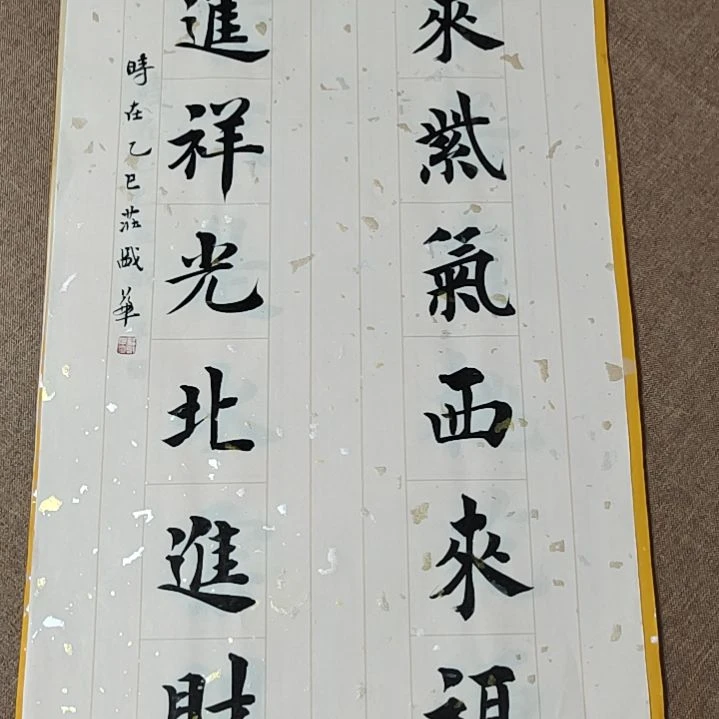 來紫氣西來
進祥光北進財
時在乙巳莊
華